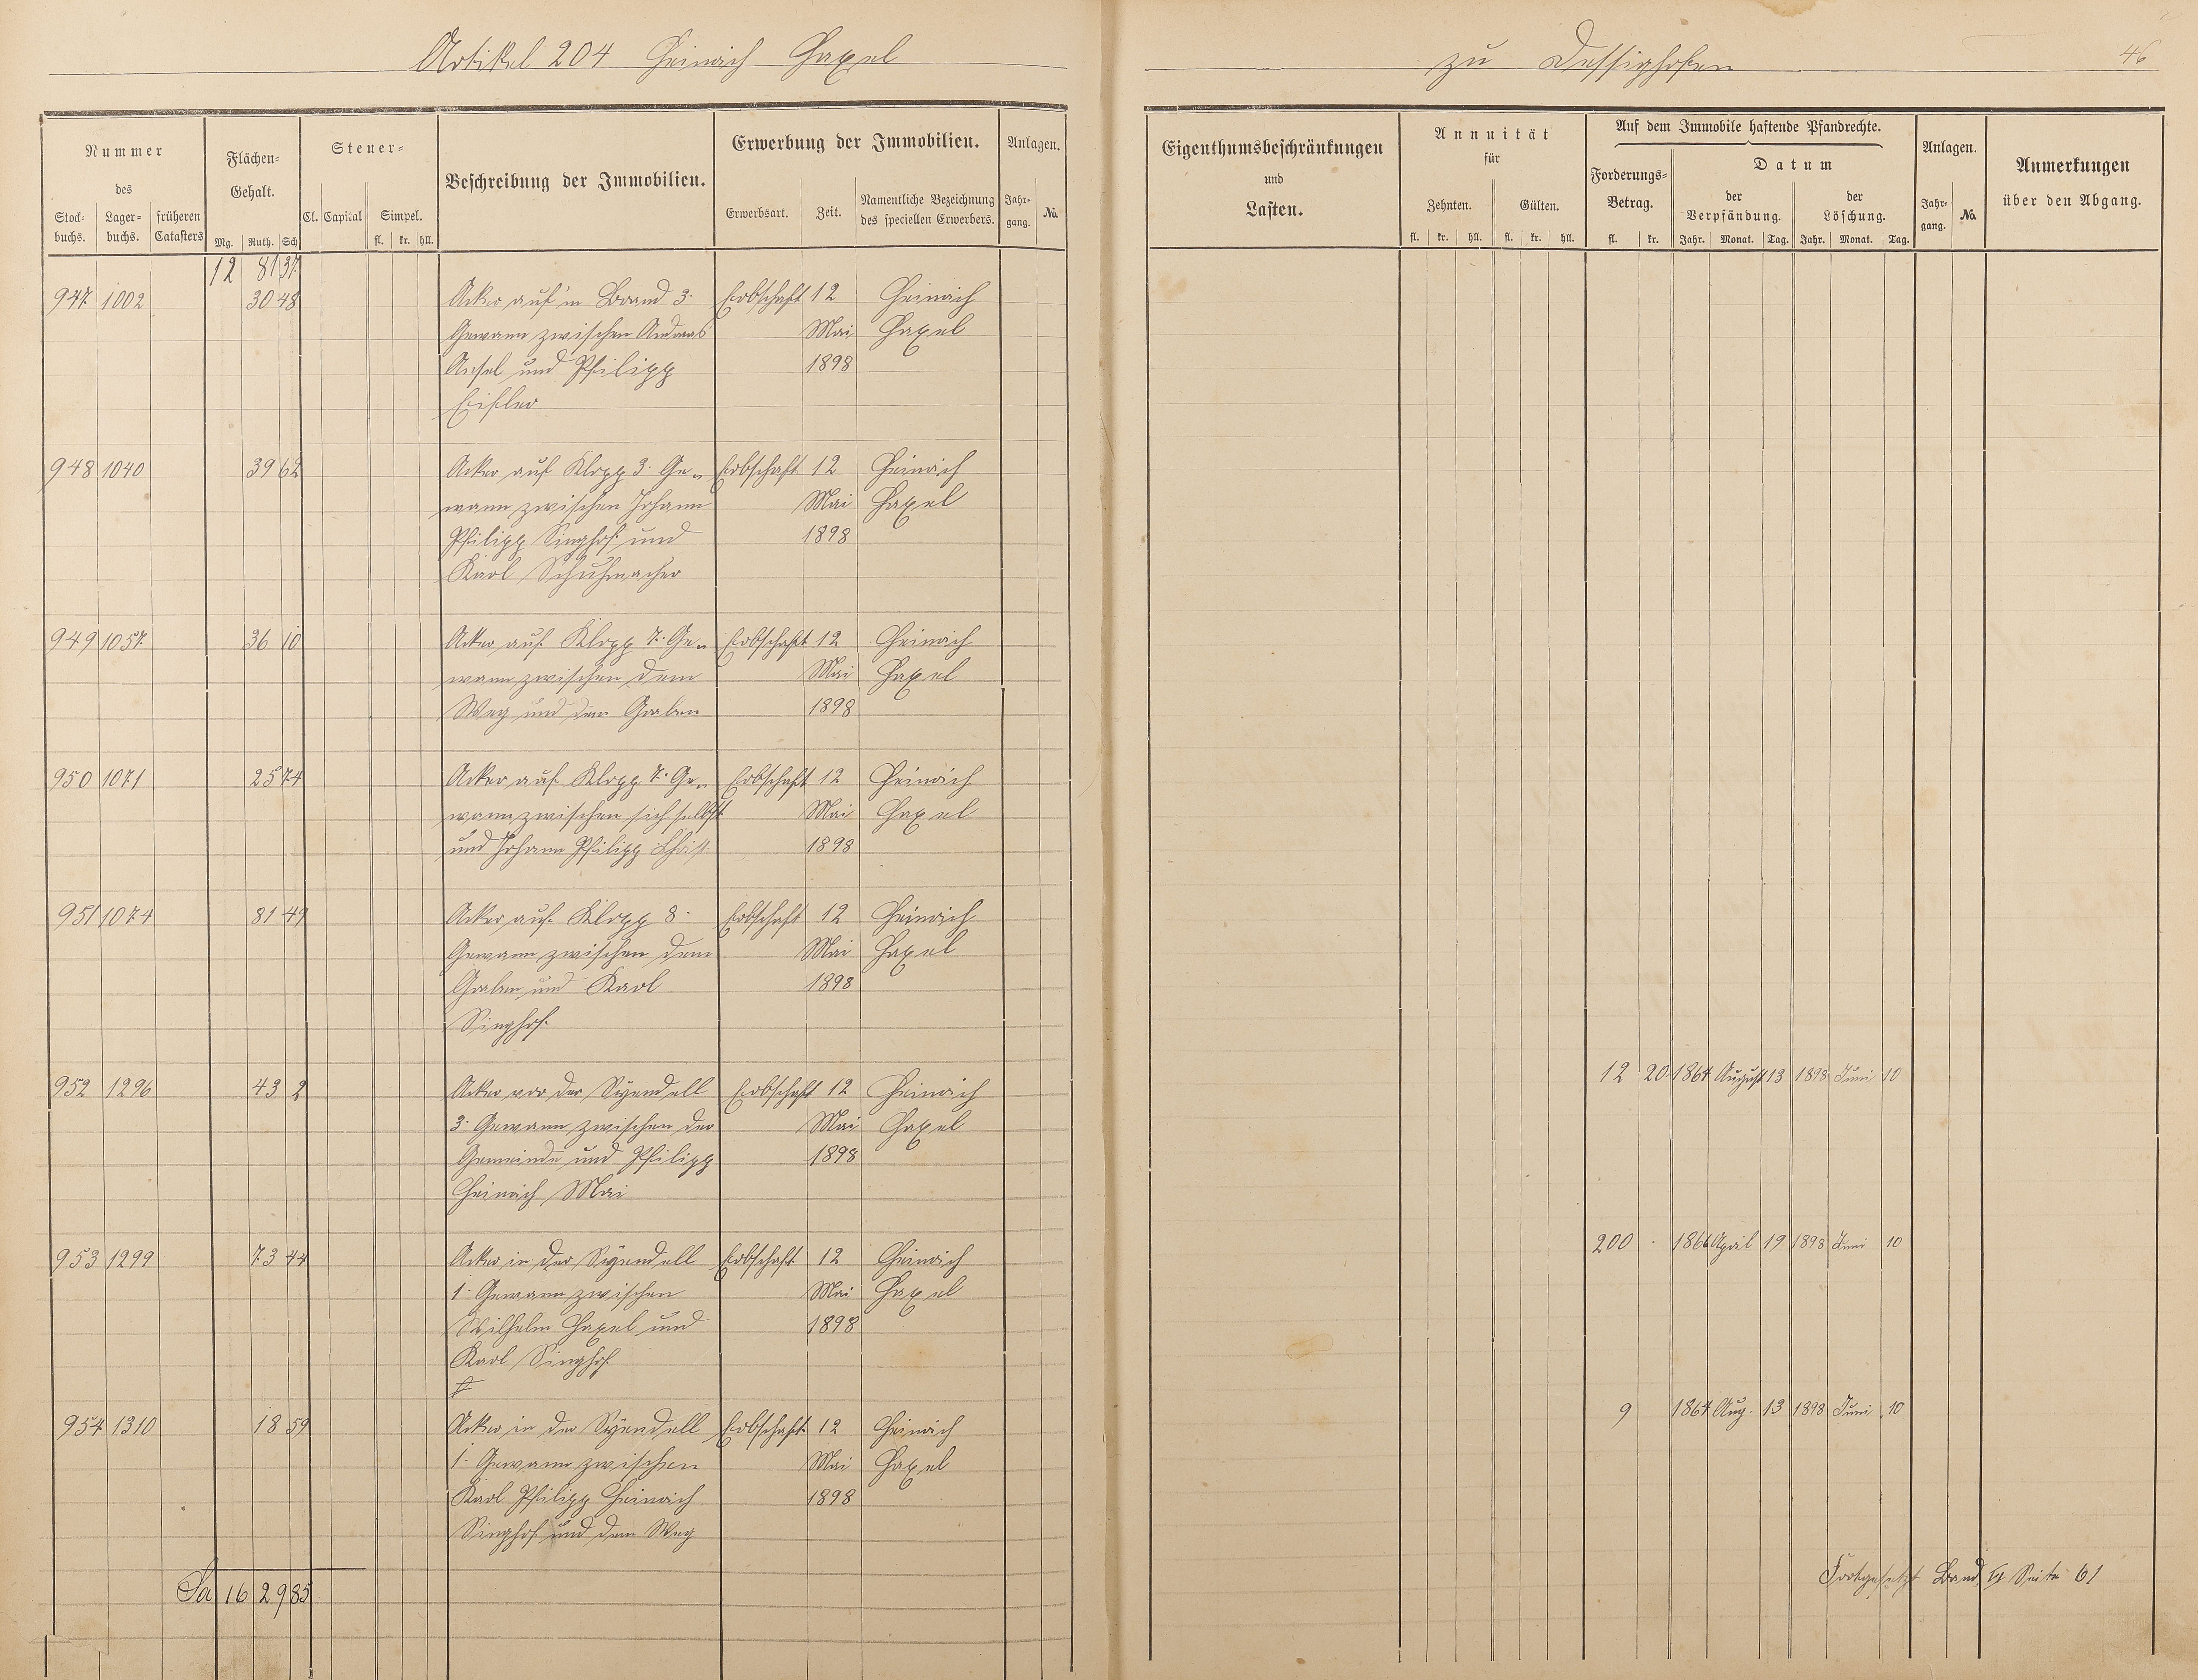 Artikel 204 Heinrich Haxel
zu Dessighofen
46
Nummer
des
Stock-
buchs.
Lager-
buchs.
früheren
Catasters
Flächen-
Gehalt.
Mg. Ruth. Sch
Steuer-
Cl. Capital Simpel.
fl. kr. hll.
Beschreibung der Immobilien.
Erwerbung der Immobilien.
Erwerbsart. Zeit. Namentliche Bezeichnung
des speciellen Erwerbers.
Anlagen.
Jahr-
gang.
No.
Eigenthumsbeschränkungen
und
Lasten.
Annuität
für
Zehnten. Gülten.
fl. kr. hll. fl. kr. hll.
Auf dem Immobile haftende Pfandrechte.
Forderungs-
Betrag.
fl. kr.
Datum
der
Verpfändung.
der
Löschung.
Jahr. Monat. Tag. Jahr. Monat. Tag.
Anlagen.
Jahr-
gang.
No.
Anmerkungen
über den Abgang.
12 81 37
947 1002 30 48 Acker auf'm Brand 3. Erbschaft 12 Heinrich
Gewann zwischen Andreas Mai Haxel
Ansel und Philipp 1898
948 1040 39 62 Acker auf Klopp 3. Ge- Erbschaft 12 Heinrich
wann zwischen Johann Mai Haxel
Philipp Singhof und 1898
Karl Schuhmacher
949 1057 36 10 Acker auf Klopp 7. Ge- Erbschaft 12 Heinrich
wann zwischen dem Mai Haxel
Weg und dem Graben 1898
950 1071 25 74 Acker auf Klopp 7. Ge- Erbschaft 12 Heinrich
wann zwischen sich selbst Mai Haxel
und Johann Philipp Christ 1898
951 1074 81 49 Acker auf Klopp 8. Erbschaft 12 Heinrich
Gewann zwischen dem Mai Haxel
Graben und Karl 1898
Singhof
952 1296 43 2 Acker vor der Erbschaft 12 Heinrich 12 20 1864 August 13 1898 Juni 10
3. Gewann zwischen der Mai Haxel
Gemeinde und Philipp 1898
Heinrich Mai
953 1299 73 44 Acker in der Erbschaft 12 Heinrich 200 - 1866 April 19 1898 Juni 10
1. Gewann zwischen Mai Haxel
Wilhelm Haxel und 1898
Karl Singhof
954 1310 18 59 Acker in der Erbschaft 12 Heinrich 9 1864 Aug. 13 1898 Juni 10
1. Gewann zwischen Mai Haxel
Karl Philipp Heinrich 1898
Singhof und dem Weg
Sa 16 29 85
Fortgesetzt Band Seite 61